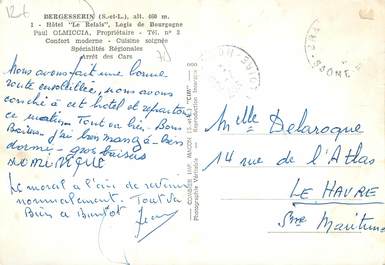 BERGESSERIN (S.-et-L.), alt. 460 m.
1 - Hôtel "Le Relais", Logis de Bourgogne
Paul OLMICCIA, Propriétaire - Tél. n° 2
Confort moderne - Cuisine soignée
Spécialités Régionales
Arrêt des Cars
Nous avons fait une bonne
route ensoleillée, nous avons
couché à cet hotel et repartons
ce matin. Tout va bien. Bons
Baisers. J'ai bien mangé - bien
dormi - gros baisers
DOMINIQUE
Le moral a l'air de revenir
normalement. Tout va
Bien a Bientot
Jean
COMBIER IMP. MACON (S.-et-L.) "CIM"
Photographie Véritable - Reproduction Interdite
SAONE
Melle Delaroque
14 rue de l'Atlas
LE HAVRE
Sne Maritime